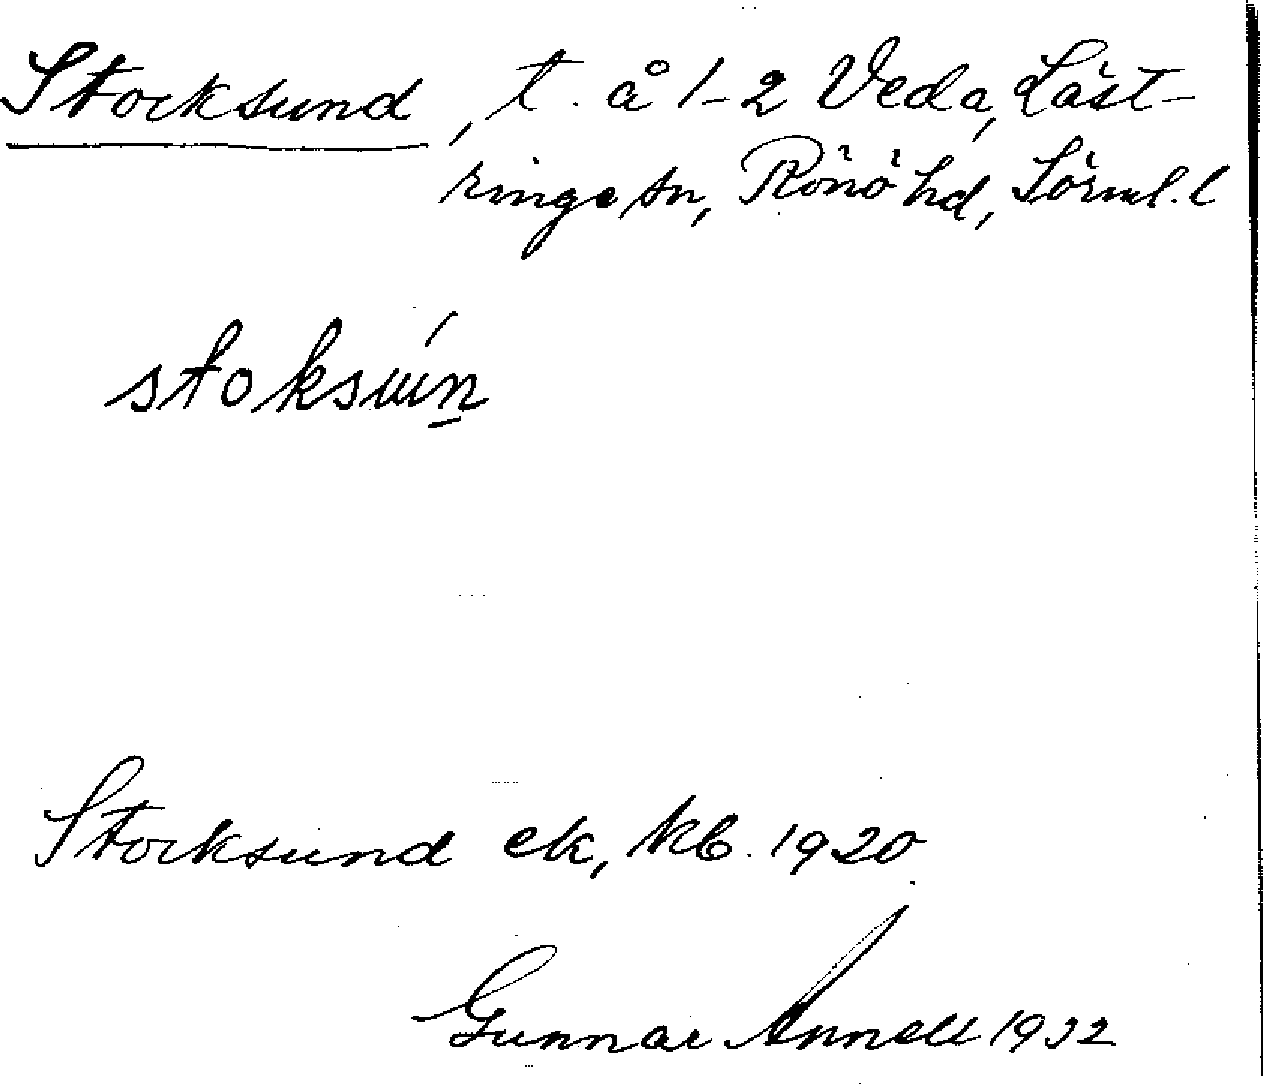 Stocksund, t. å 1-2 Veda, Läst-
ringe sn, Rönö hd, Sörml. l
stoksún̲
Stocksund ek, kb. 1920
Gunnar Annell 1932